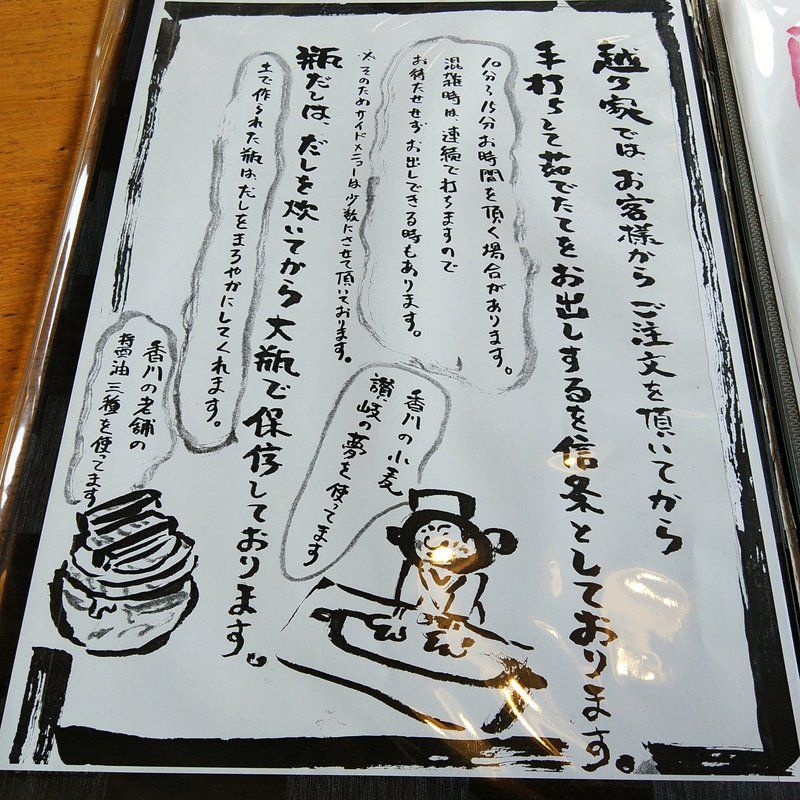 越乃家では、お客様からご注文を頂いてから
手打ちして茹でたてをお出しするを信条としております。
10分〜15分お時間を頂く場合があります。
混雑時は、連続で打ちますので
お待たせせずお出しできる時もあります。
そのためサイドメニューは少数にさせて頂いております。
瓶だしは、だしを炊いてから大瓶で保存しております。
土で作られた瓶は、だしをまろやかにしてくれます。
香川の小麦
讃岐の夢を使ってます
香川の老舗の
醤油三種を使ってます